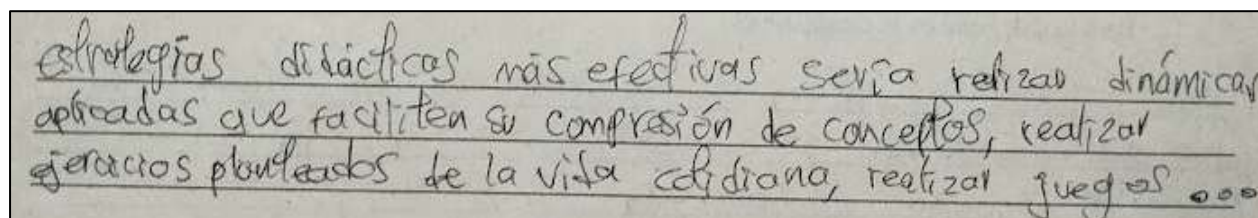 estrategias didácticas más efectivas sería relizar dinámicas
aplicadas que faciliten su compresión de conceptos, realizar
ejercicios planteados de la vida cotidiana, realizar juegos ...